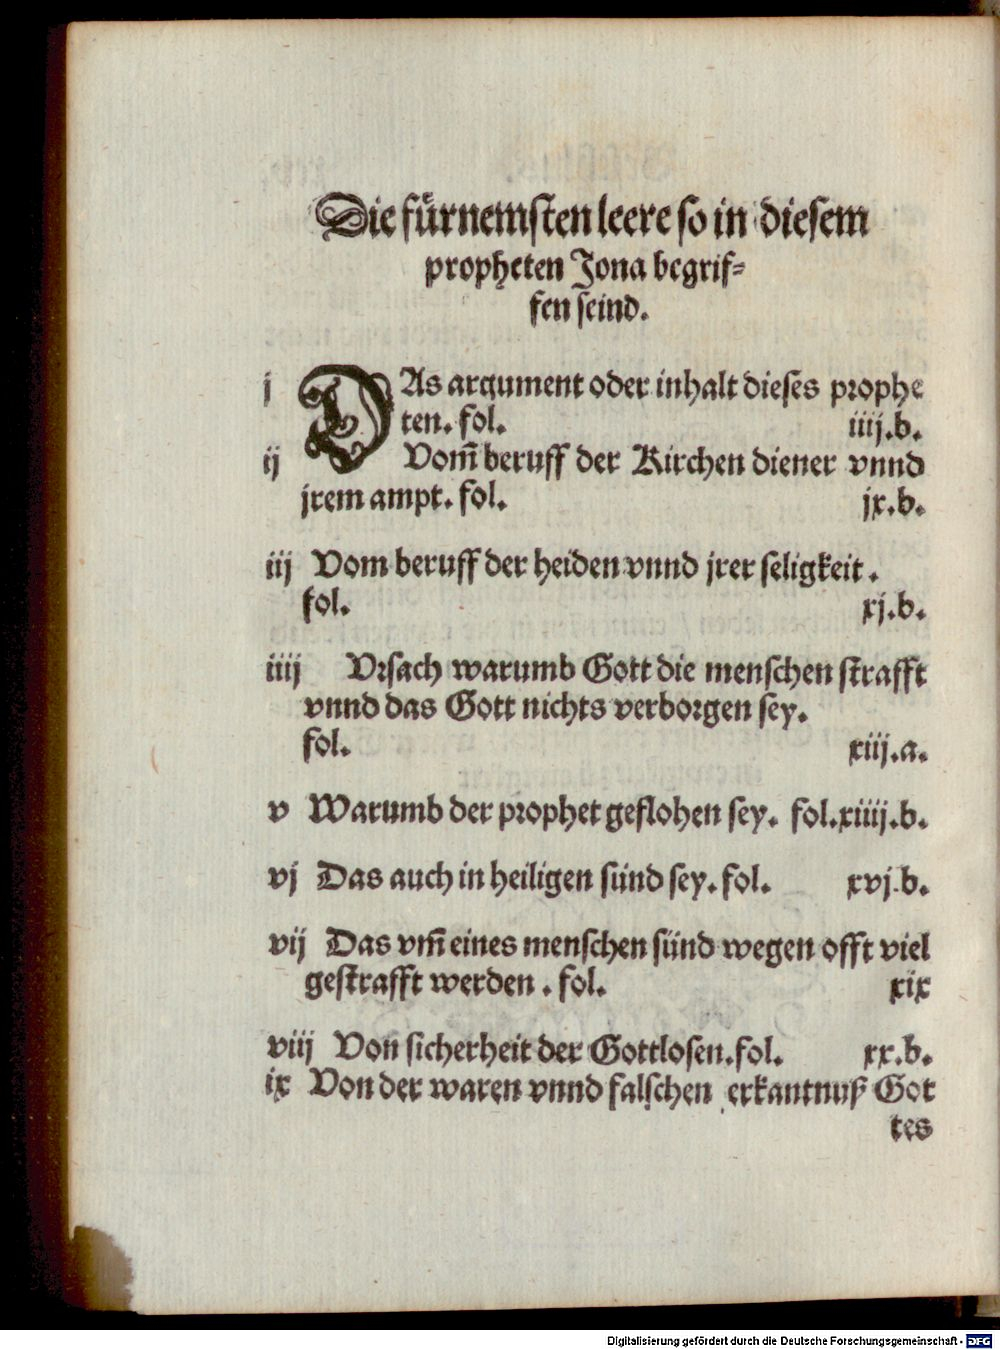 Die fürnemsten leere so in diesem
propheten Jona begrif-
fen seind.
j DAs argument oder inhalt dieses prophe
ten. fol. iiij.b.
ij Vom̄ beruff der Kirchen diener vnnd
jrem ampt. fol. jx.b.
iij Vom beruff der heiden vnnd jrer seligkeit.
fol. xj.b.
iiij Vrsach warumb Gott die menschen strafft
vnnd das Gott nichts verborgen sey.
fol. xiij.a.
v Warumb der prophet geflohen sey. fol.xiiij.b.
vj Das auch in heiligen sünd sey. fol. xvj.b.
vij Das vm̄ eines menschen sünd wegen offt viel
gestrafft werden. fol. xix
viij Von sicherheit der Gottlosen.fol. xx.b.
ix Von der waren vnnd falschen erkantnuß Got
tes
Digitalisierung gefördert durch die Deutsche Forschungsgemeinschaft - DFG